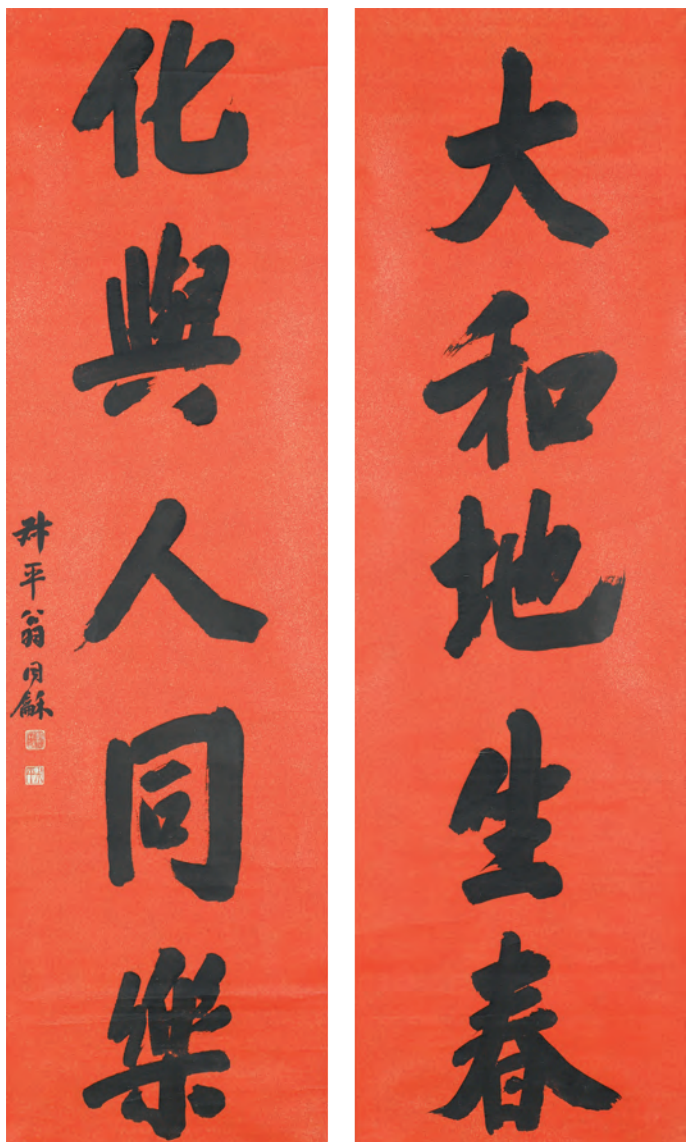 大和地生春
化與人同樂
叔平翁同龢